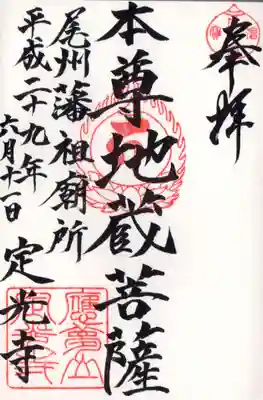 奉拝
本尊地蔵菩薩
尾州藩祖廟所
定光寺
平成二十九年
六月十一日
應夢山